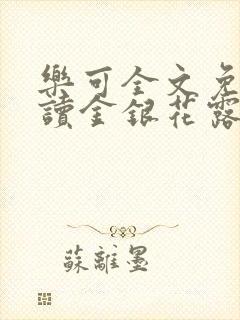 樂可全文免
讀金銀花露
蘇離墨